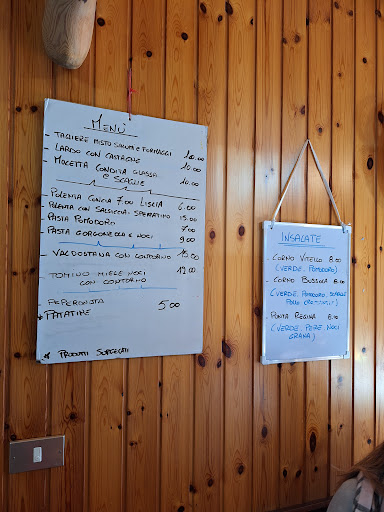 MENÙ
- TAGLIERE MISTO SALUMI E FORMAGGI 18.00
- LARDO CON CASTAGNE 10.00
- MOCETTA CONDITA GLASSA E SCAGLIE 10.00
POLENTA CONCIA 7.00 LISCIA 6.00
POLENTA CON SALSICCIA, SPEZZATINO 15.00
PASTA POMODORO 7.00
PASTA GORGONZOLA E NOCI 9.00
VALDOSTANA CON CONTORNO 15.00
TOMINO MIELE NOCI CON CONTORNO 12.00
PEPERONATA
PATATINE 5.00
* PRODOTTI SURGELATI
INSALATE
- CORNO VITELLO 8.00
(VERDE, POMODORO)
- CORNO BUSSOLA 8.00
(VERDE, POMODORO, SCAGLIE
POLLO CROSTINI)
- PUNTA REGINA 8.00
(VERDE, PERE NOCI
GRANA)